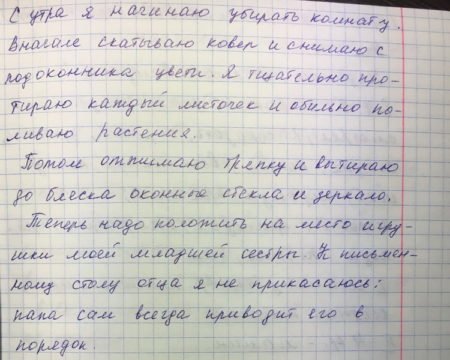 С утра я начинаю убирать комнату.
Вначале скатываю ковер и снимаю с
подоконника цветы. Я тщательно про-
тираю каждый листочек и обильно по-
ливаю растения.
Потом отжимаю тряпку и вытираю
до блеска оконные стекла и зеркало.
Теперь надо положить на место игру-
шки моей младшей сестры. К письмен-
ному столу отца я не прикасаюсь:
папа сам всегда приводит его в
порядок.